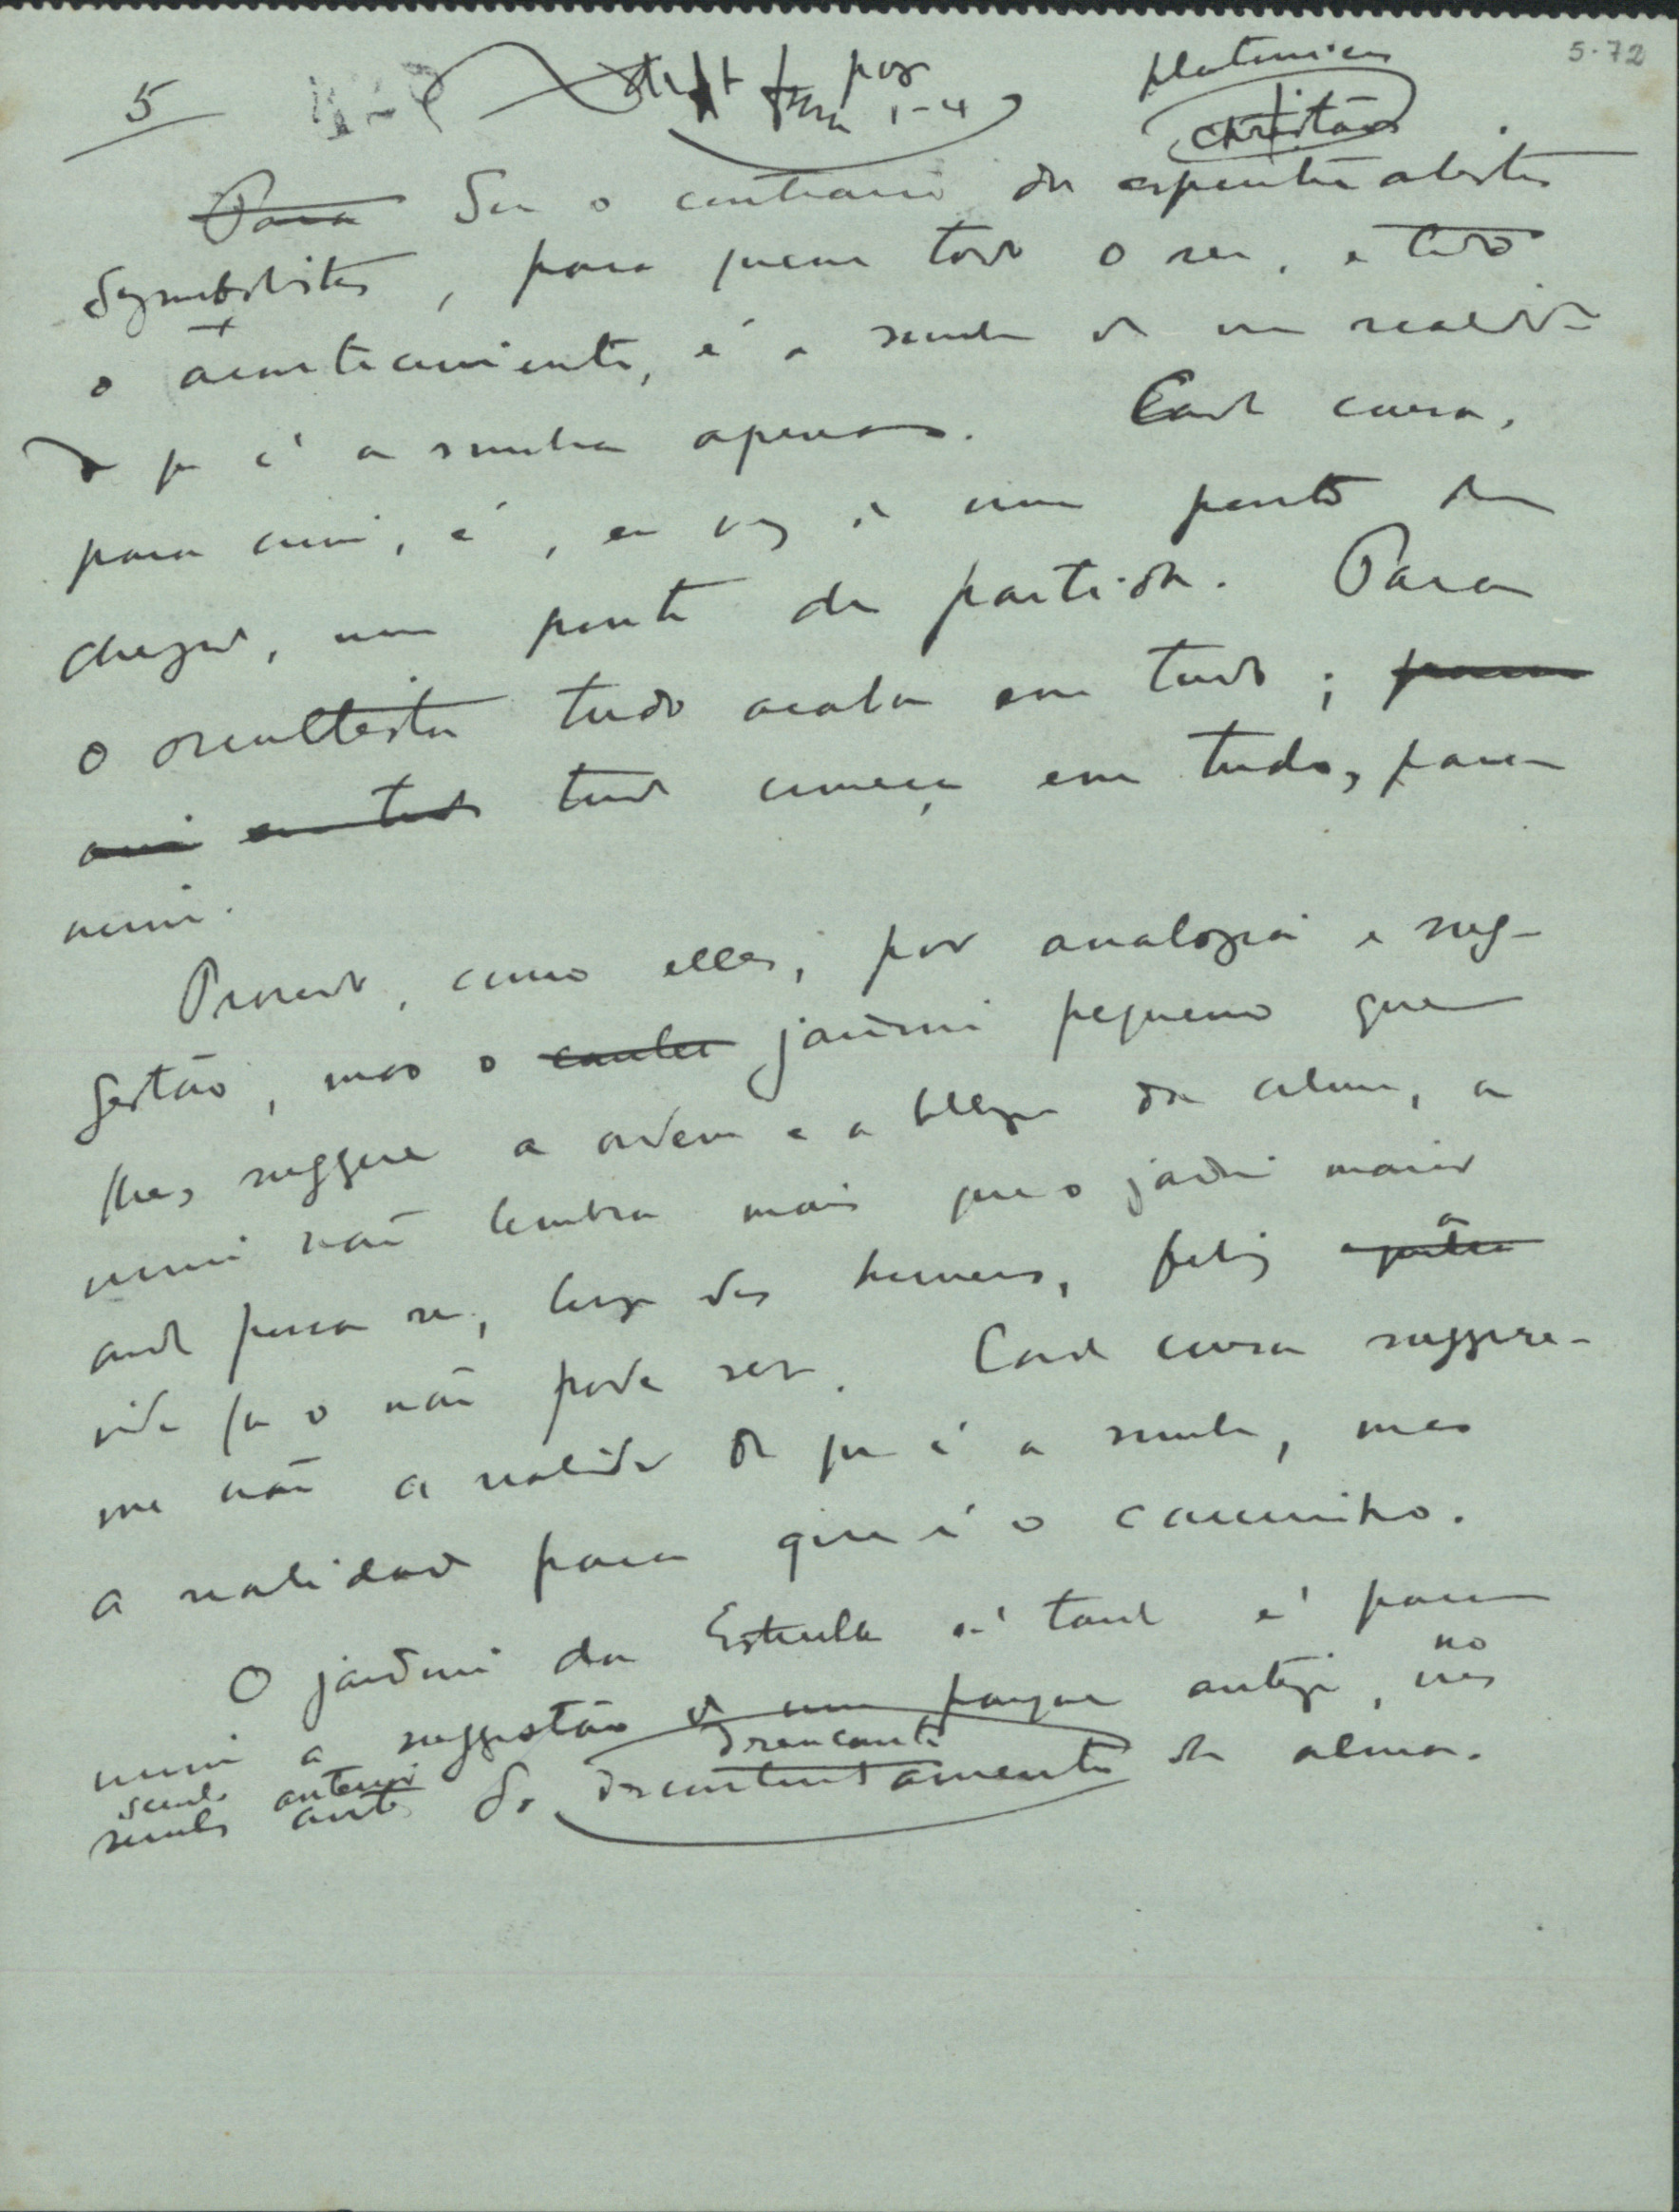 5
pag 1-4
platonicos
christãos
5-72
Para Sou o contrario dos espiritualistas
symbolistas, para quem todo o ser, e todo
o acontecimento, é a sombra de uma realida-
de que é a sombra apenas. Cada cousa,
para mim, é, em vez de um ponto de
chegada, um ponto de partida. Para
o occultista tudo acaba em tudo; para
mim em tudo tudo começa em tudo, para
mim.
Procedo, como elles, por analogia e sug-
gestão, mas o jardim pequeno que
lhes suggere a ordem e a belleza da alma, a
mim não lembra mais que o jardim maior
onde possa ser, longe dos homens, feliz a
vida que o não pode ser. Cada cousa suggere-
me não a realidade de que é a sombra, mas
a realidade para que é o caminho.
O jardim da Estrella á tarde é para
mim a suggestão de um parque antigo, nos
no
seculo anterior
seculos antes do descontentamento da alma.